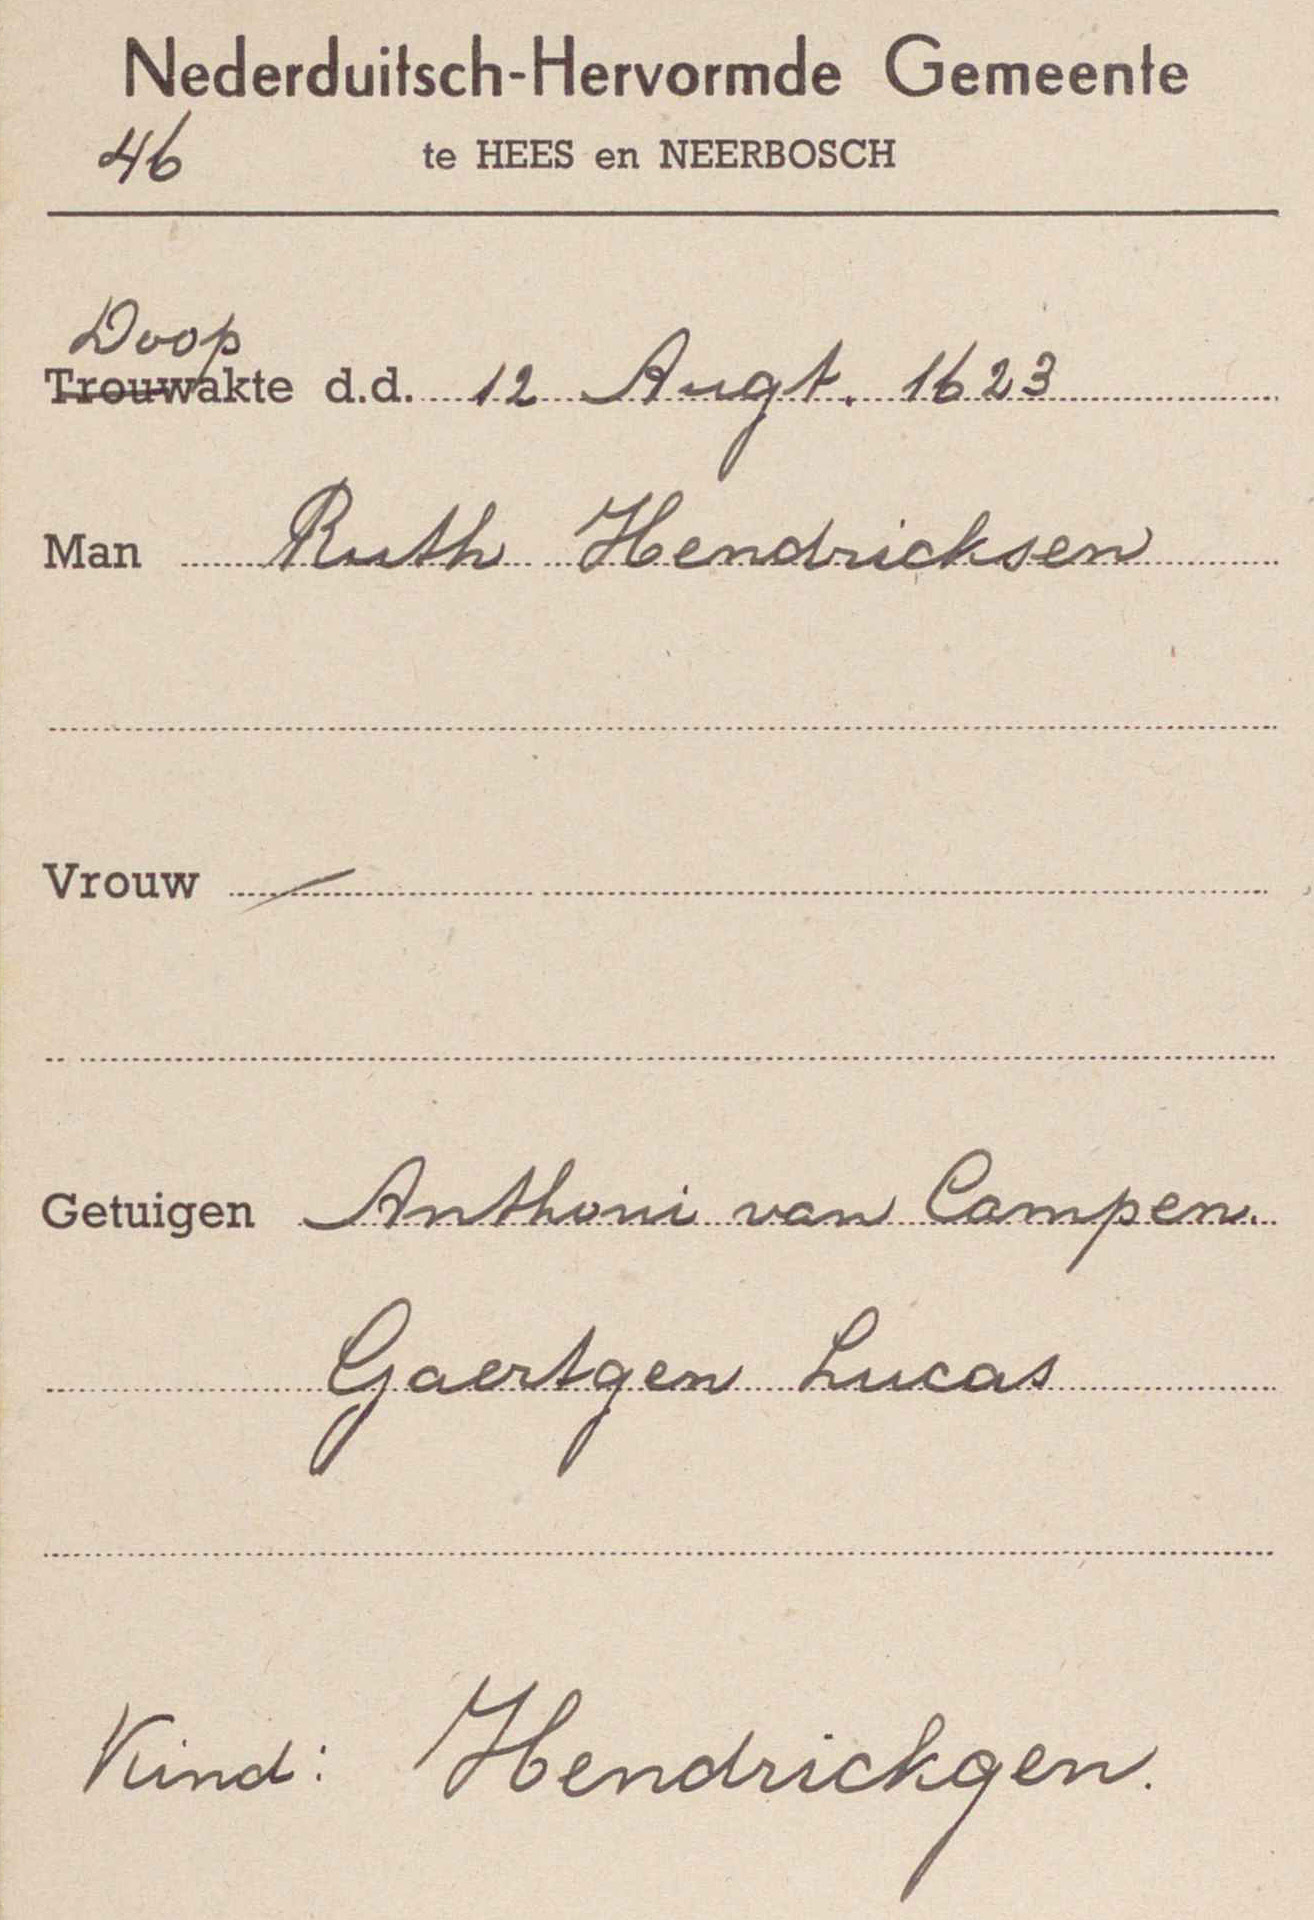 Nederduitsch-Hervormde Gemeente
46 te HEES en NEERBOSCH
Doop
Trouwakte d.d. 12 Augt. 1623
Man Ruth Hendricksen
Vrouw –
Getuigen Anthoni van Campen.
Gaertgen Lucas
Kind: Hendrickgen.